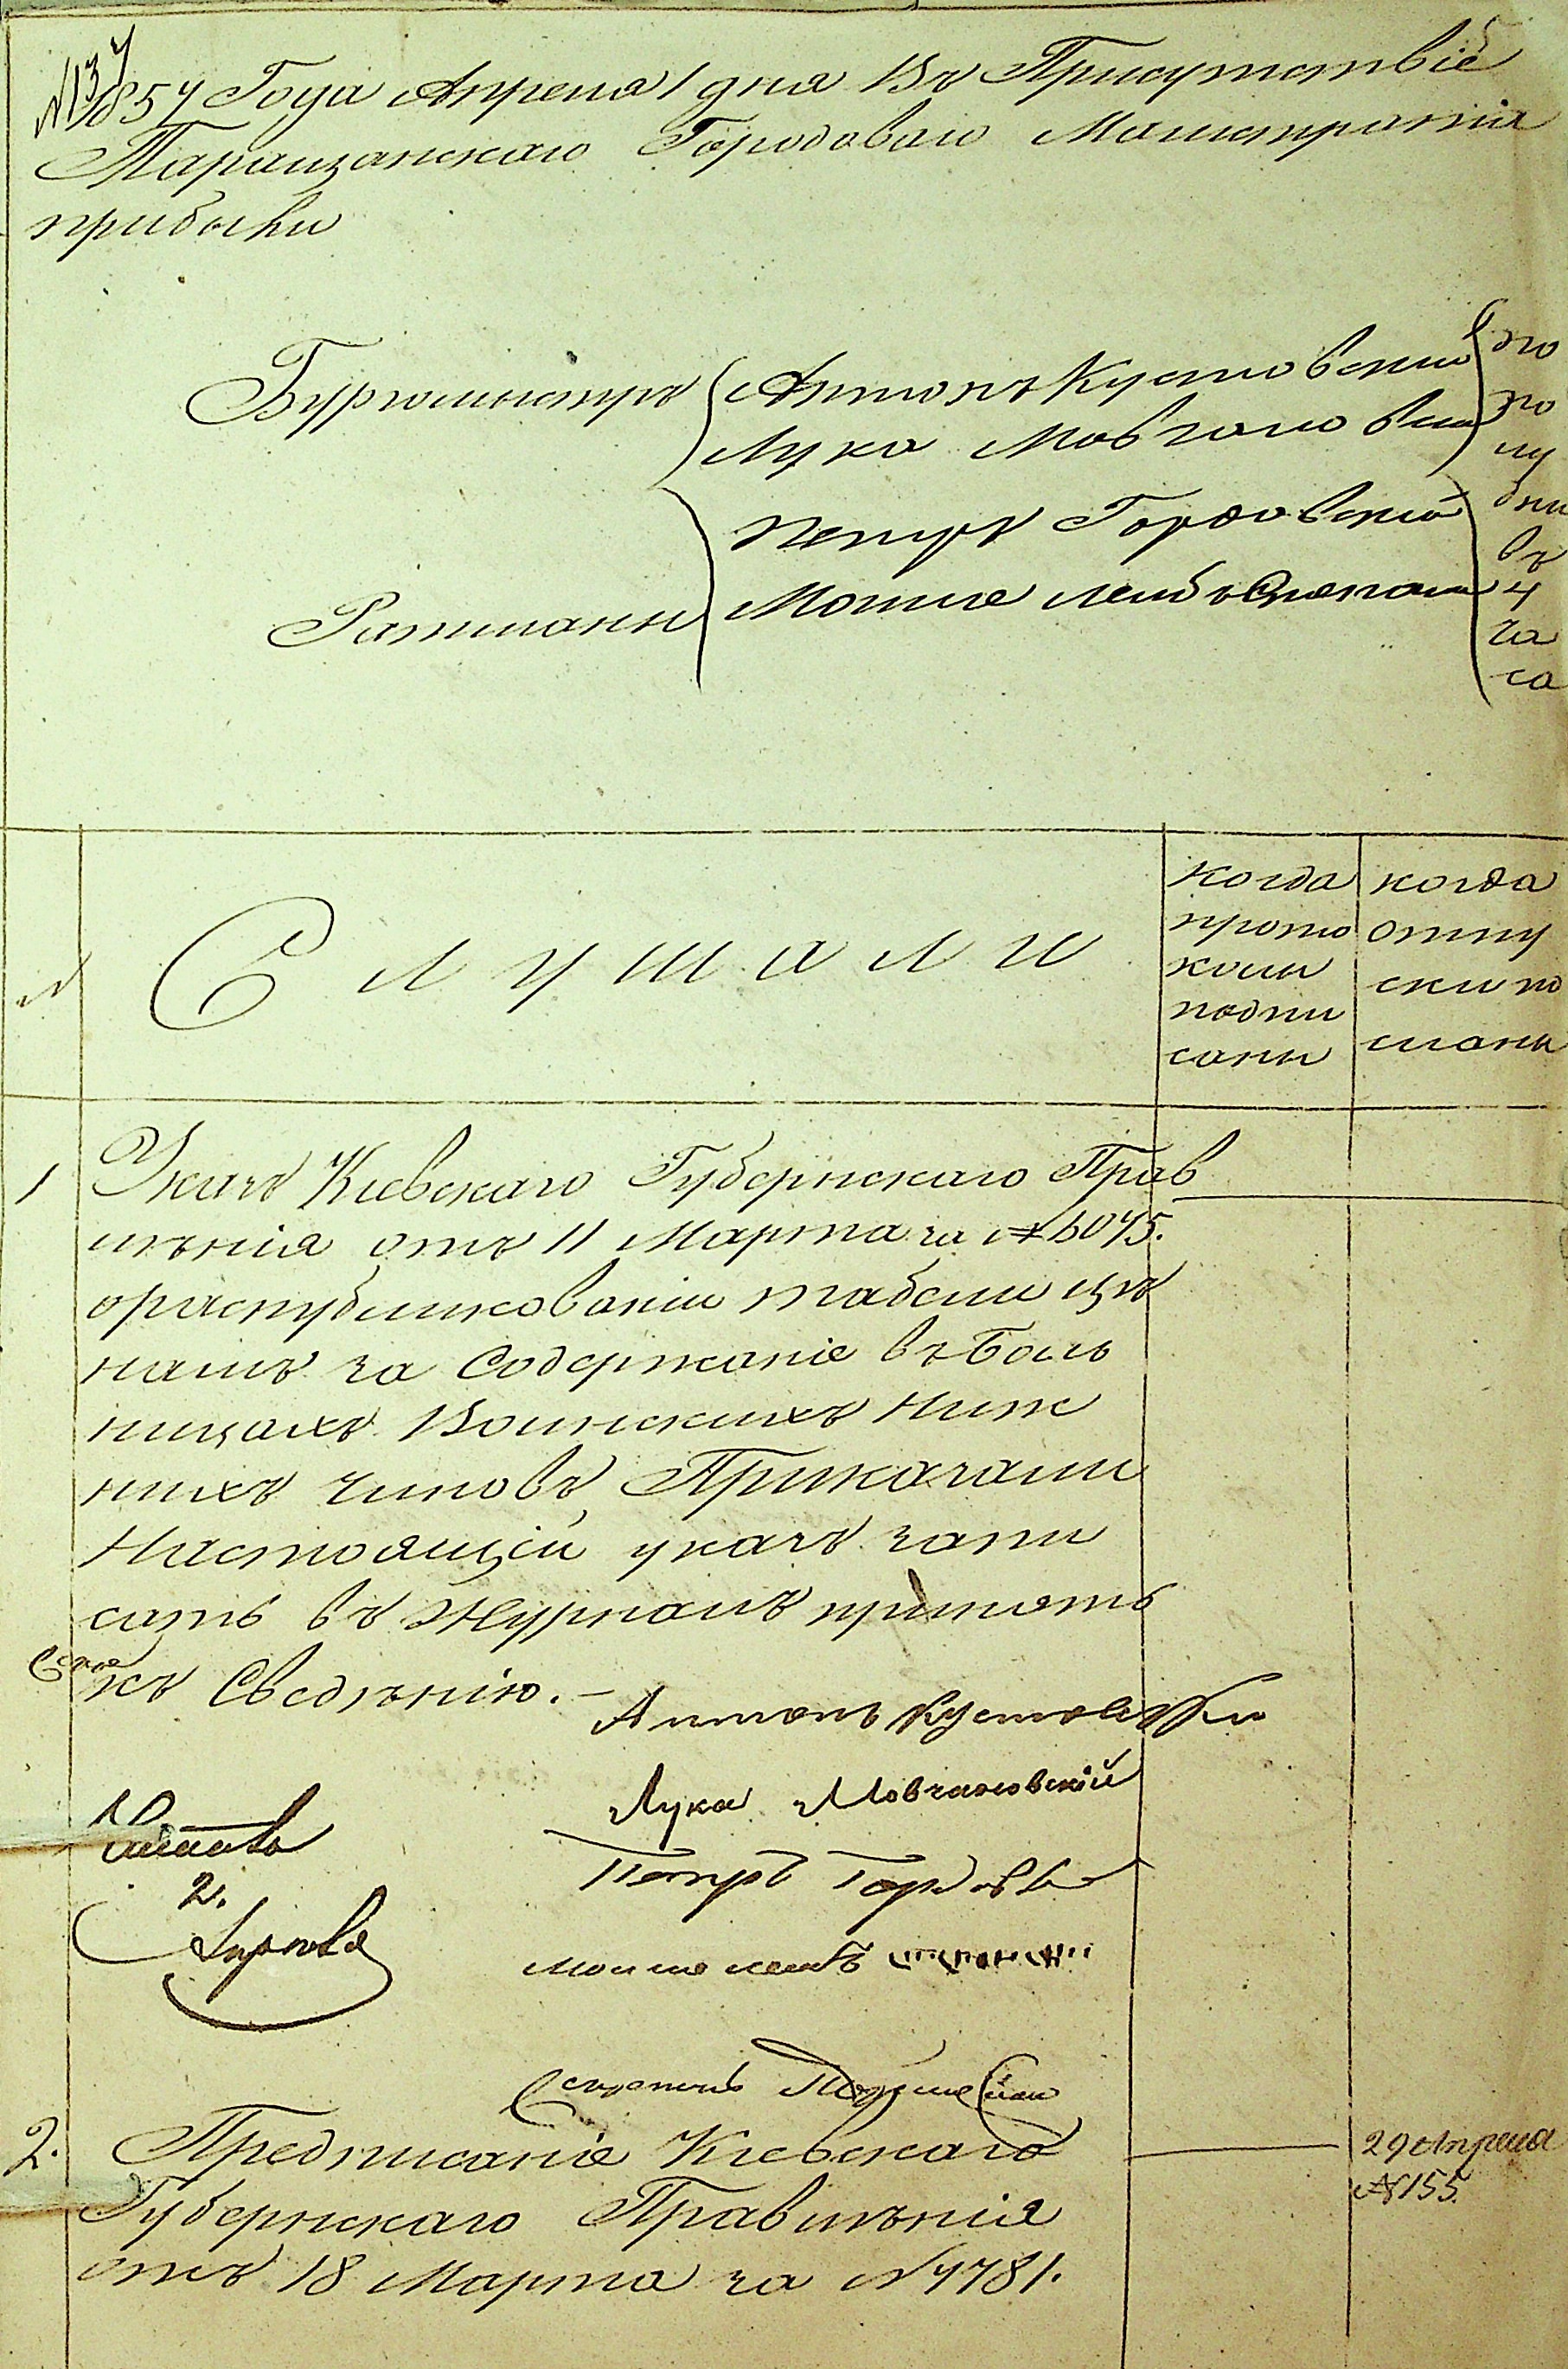 №137
1857 Года Апреля 1 дня Въ Присутствіе
Таращанскаго Городоваго Магистрата
прибыли
Бургомистръ
Антонъ Кустовский
Лука Мовчановский
Ратманы
Петръ Горновский
Мошие Лейбъ
по
по
лу
дни
въ
4
ча
са
№
Слушали
когда
прото
колы
подпи
саны
когда
отпу
ски по
сланы
1
Указъ Кіевскаго Губернскаго Прав
ленія отъ 11 Марта за № 6075.
о распубликованіи табели цѣ
намъ за Содержаніе въ боль
ницахъ Воинскихъ Ниж
нихъ чиновъ Приказали
Настоящій указъ запи
сать въ Журналъ принять
къ Сведѣнію. —
Антонъ Кустовский
Лука Мовчановскій
Петръ Горновский
Мошие Лейбъ
2.
2.
Предписаніе Кіевскаго
Губернскаго Правленія
отъ 18 Марта за № 7781.
29 Апреля
№ 155.